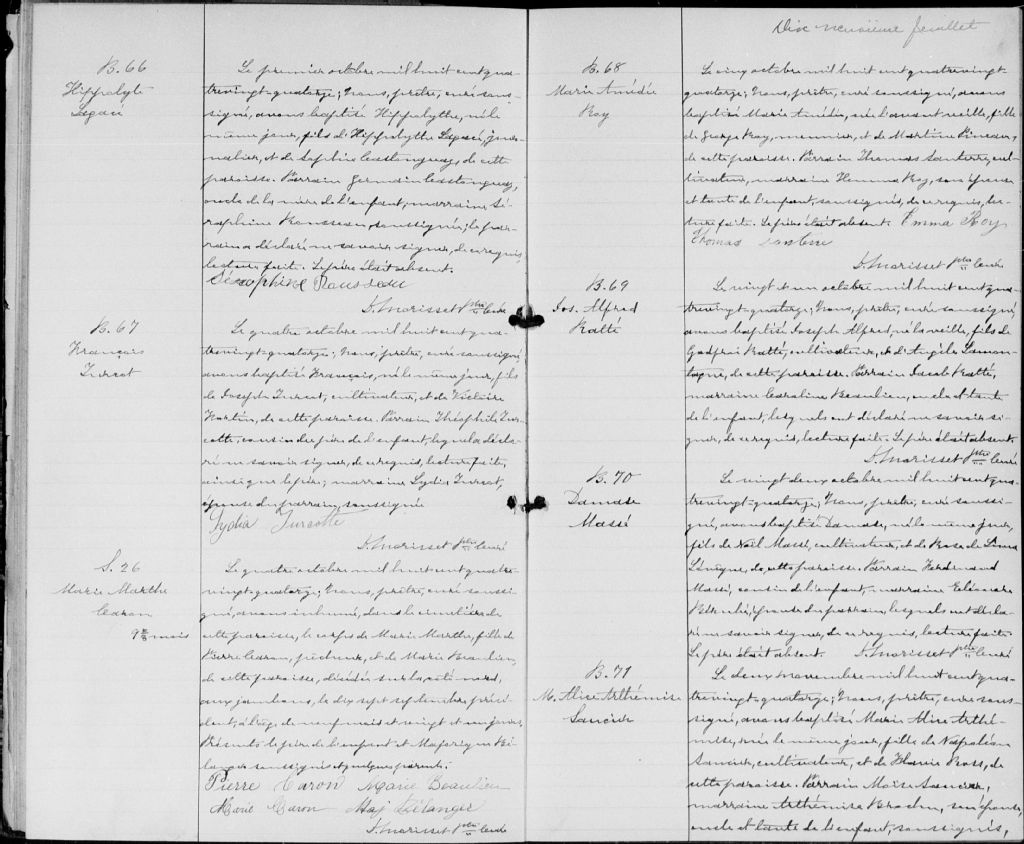 B. 66
Hippolyte
Lepage
Le premier octobre mil huit cent qua-
trevingt-quatorze; Nous, prêtre, curé sous-
signé, avons baptisé Hippolythe, né le
même jour, fils d'Hippolythe Lepage, jour-
nalier, et de Sophie Castonguay, de cette
paroisse. Parrain Germain Castonguay,
oncle de la mère de l'enfant, marraine Sé-
raphine Rousseau, soussignée; le par-
rain a déclaré ne savoir signer, de ce requis,
lecture faite. Le père était absent.
Séraphine Rousseau
D. Morisset ptre Curé
B. 67
François
Turcot
Le quatre octobre mil huit cent qua-
trevingt-quatorze; Nous, prêtre, curé soussigné,
avons baptisé François, né le même jour, fils
de Joseph Turcot, cultivateur, et de Victoire
Martin, de cette paroisse. Parrain Théophile Tur-
cotte, cousin du père de l'enfant, lequel a décla-
ré ne savoir signer, de ce requis, lecture faite,
ainsi que le père; marraine Lydia Turcot,
épouse du parrain, soussignée
Lydia Turcotte
D. Morisset ptre Curé
S. 26
Marie Marthe
Caron
9 mois
Le quatre octobre mil huit cent quatre-
vingt-quatorze; Nous, prêtre, curé soussi-
gné, avons inhumé, dans le cimetière de
cette paroisse, le corps de Marie Marthe, fille de
Pierre Caron, pêcheur, et de Marie Beaulieu,
de cette paroisse, décédée sur la côté nord,
aux jambons, le dix sept septembre précé-
dent, à l'âge de neuf mois et vingt et un jours.
Présents le père de l'enfant et Majorique Bé-
langer soussignés et quelques parents.
Pierre Caron Marie Beaulieu
Marie Caron Maj Bélanger
D. Morisset ptre Curé
Dix neuvième feuillet
B. 68
Marie Amédée
Roy
Le cinq octobre mil huit cent quatrevingt-
quatorze; Nous, prêtre, curé soussigné, avons
baptisé Marie Amédée, née l'avant veille, fille
de George Roy, menuisier, et de Martine Pineau,
de cette paroisse. Parrain Thomas Santerre, cul-
tivateur, marraine Hemma Roy, son épouse
et tante de l'enfant, soussignés, de ce requis, lec-
ture faite. Le père était absent. Emma Roy
Thomas Santerre
D. Morisset ptre Curé
B. 69
Jos. Alfred
Ratté
Le vingt et un octobre mil huit cent qua-
trevingt-quatorze; Nous, prêtre, curé soussigné,
avons baptisé Joseph Alfred, né la veille, fils de
Godfroi Ratté, cultivateur, et d'Angèle Lamon-
tagne, de cette paroisse. Parrain Jacob Ratté,
marraine Caroline Beaulieu, oncle et tante
de l'enfant, lesquels ont déclaré ne savoir si-
gner, de ce requis, lecture faite. Le père était absent.
D. Morisset ptre Curé
B. 70
Damase
Massé
Le vingt deux octobre mil huit cent qua-
trevingt-quatorze; Nous, prêtre, curé soussi-
gné, avons baptisé Damase, né le même jour,
fils de Noël Massé, cultivateur, et de Rose de Lima
Lévêque, de cette paroisse. Parrain Ferdinand
Massé, cousin de l'enfant, marraine Eléonore
épouse du parrain, lesquels ont décla-
ré ne savoir signer, de ce requis, lecture faite.
Le père était absent. D. Morisset ptre Curé
B. 71
M. Alice Arthémise
Saucier
Le deux novembre mil huit cent qua-
trevingt-quatorze; Nous, prêtre, curé sous-
signé, avons baptisé Marie Alice Arthé-
mise, née le même jour, fille de Napoléon
Saucier, cultivateur, et de Flavie Ross, de
cette paroisse. Parrain Moïse Saucier,
marraine Arthémise son épouse,
oncle et tante de l'enfant, soussignés,